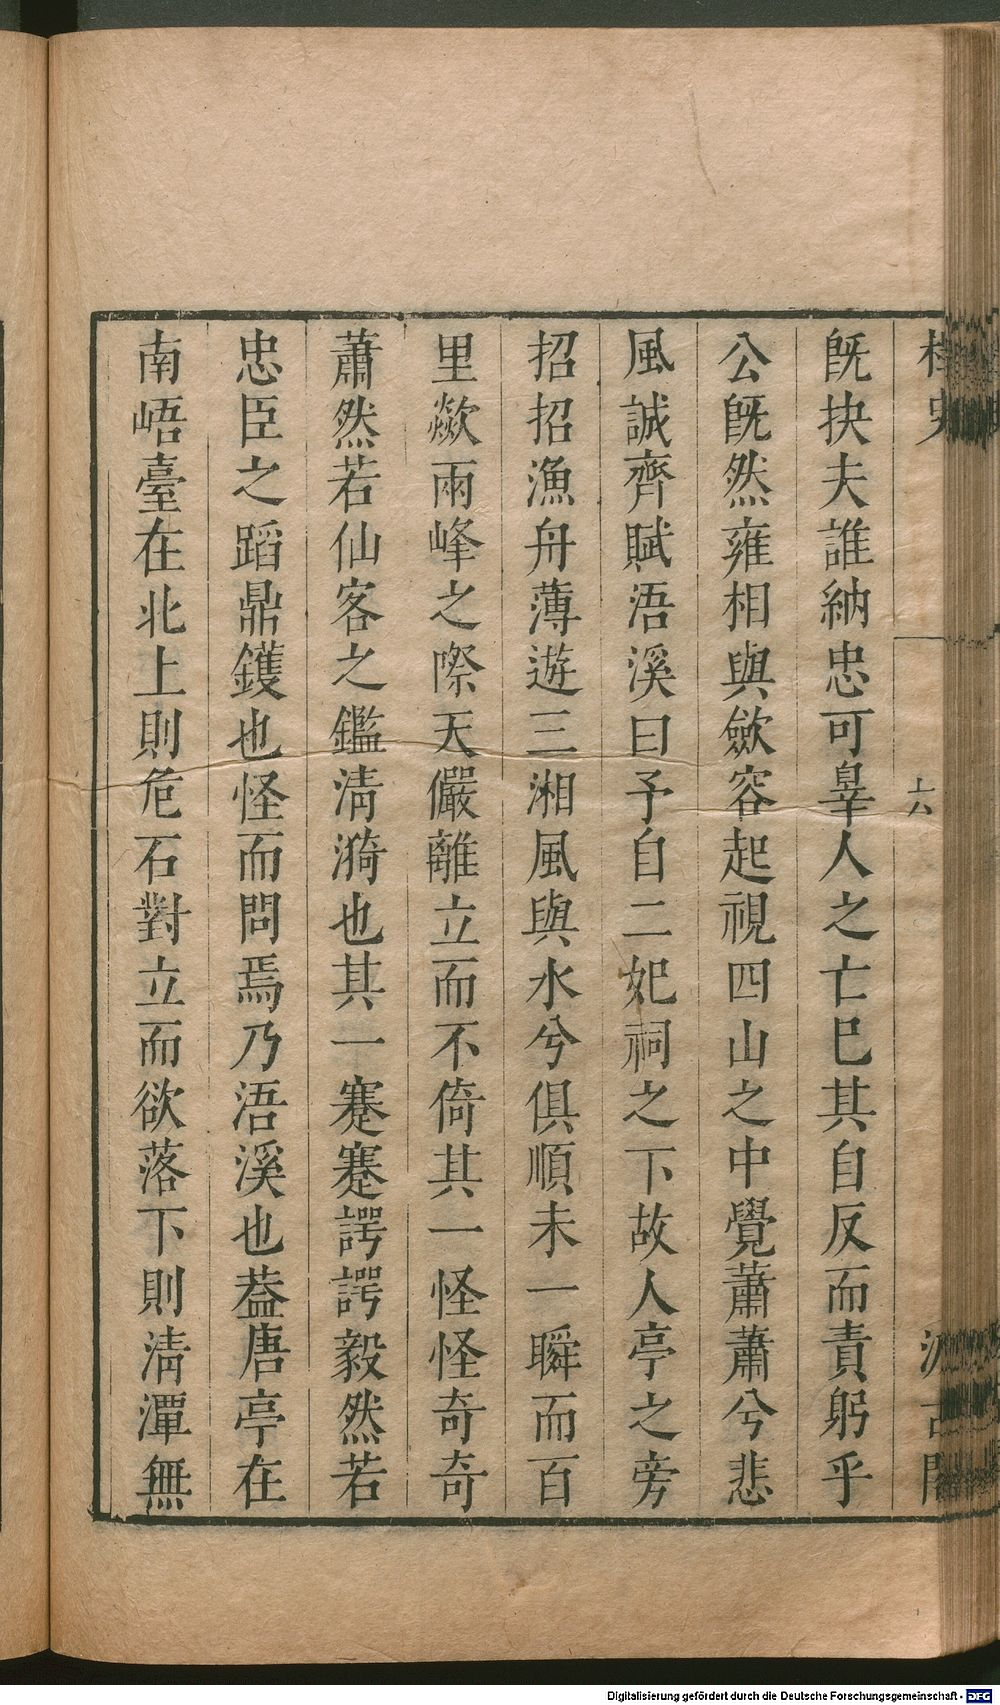 旣抉夫誰納忠可辠人之亡巳其自反而責躬乎
公旣然雍相與歛容起視四山之中覺蕭蕭兮悲
風誠齊賦浯溪曰予自二妃祠之下故人亭之旁
招招漁舟薄遊三湘風與水兮俱順未一瞬而百
里歘兩峰之際天儼離立而不倚其一怪怪奇奇
蕭然若仙客之鑑淸漪也其一蹇蹇諤諤毅然若
忠臣之蹈鼎鑊也怪而問焉乃浯溪也葢唐亭在
南峿臺在北上則危石對立而欲落下則淸潭無
Digitalisierung gefördert durch die Deutsche Forschungsgemeinschaft - DFG